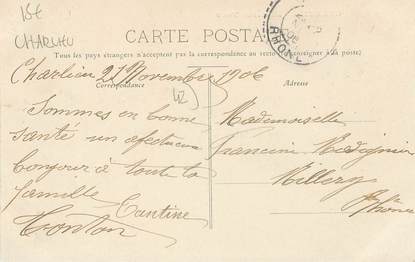 15€
CHARLIEU
CARTE POSTALE
Tous les pays étrangers n'acceptent pas la correspondance au recto (se renseigner à la poste)
RHONE
Charlieu 21 Novembre 1906
Correspondance
Adresse
42)
Sommes en bonne
santé un afectueux
bonjour à toute la
famille
Tonton
Mademoiselle
Francine
Millery
Rhône